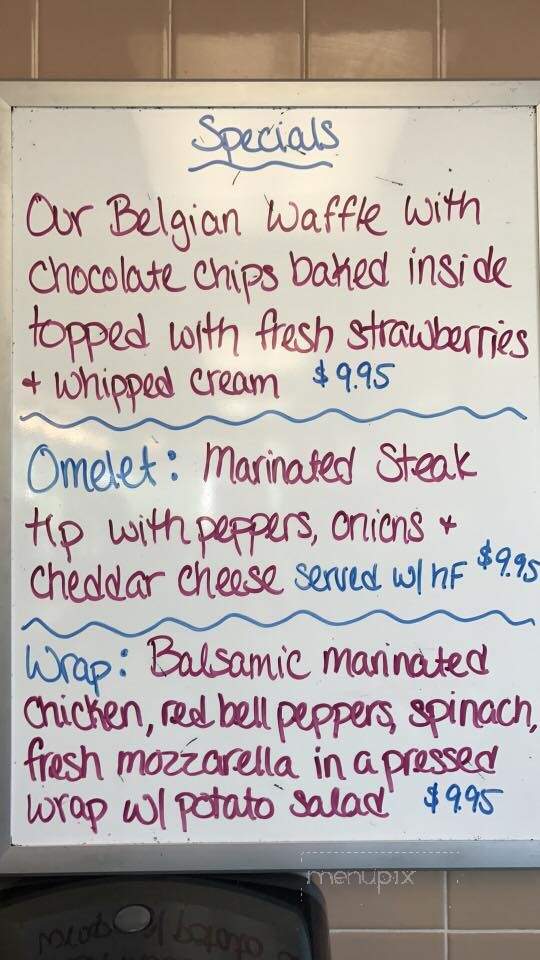 Specials
Our Belgian Waffle with
chocolate chips baked inside
topped with fresh strawberries
+ whipped cream $9.95
Omelet: Marinated Steak
tip with peppers, onions +
cheddar cheese served w/ HF $9.95
Wrap: Balsamic marinated
chicken, red bell peppers, spinach,
fresh mozzarella in a pressed
wrap w/ potato salad $9.95
menupix